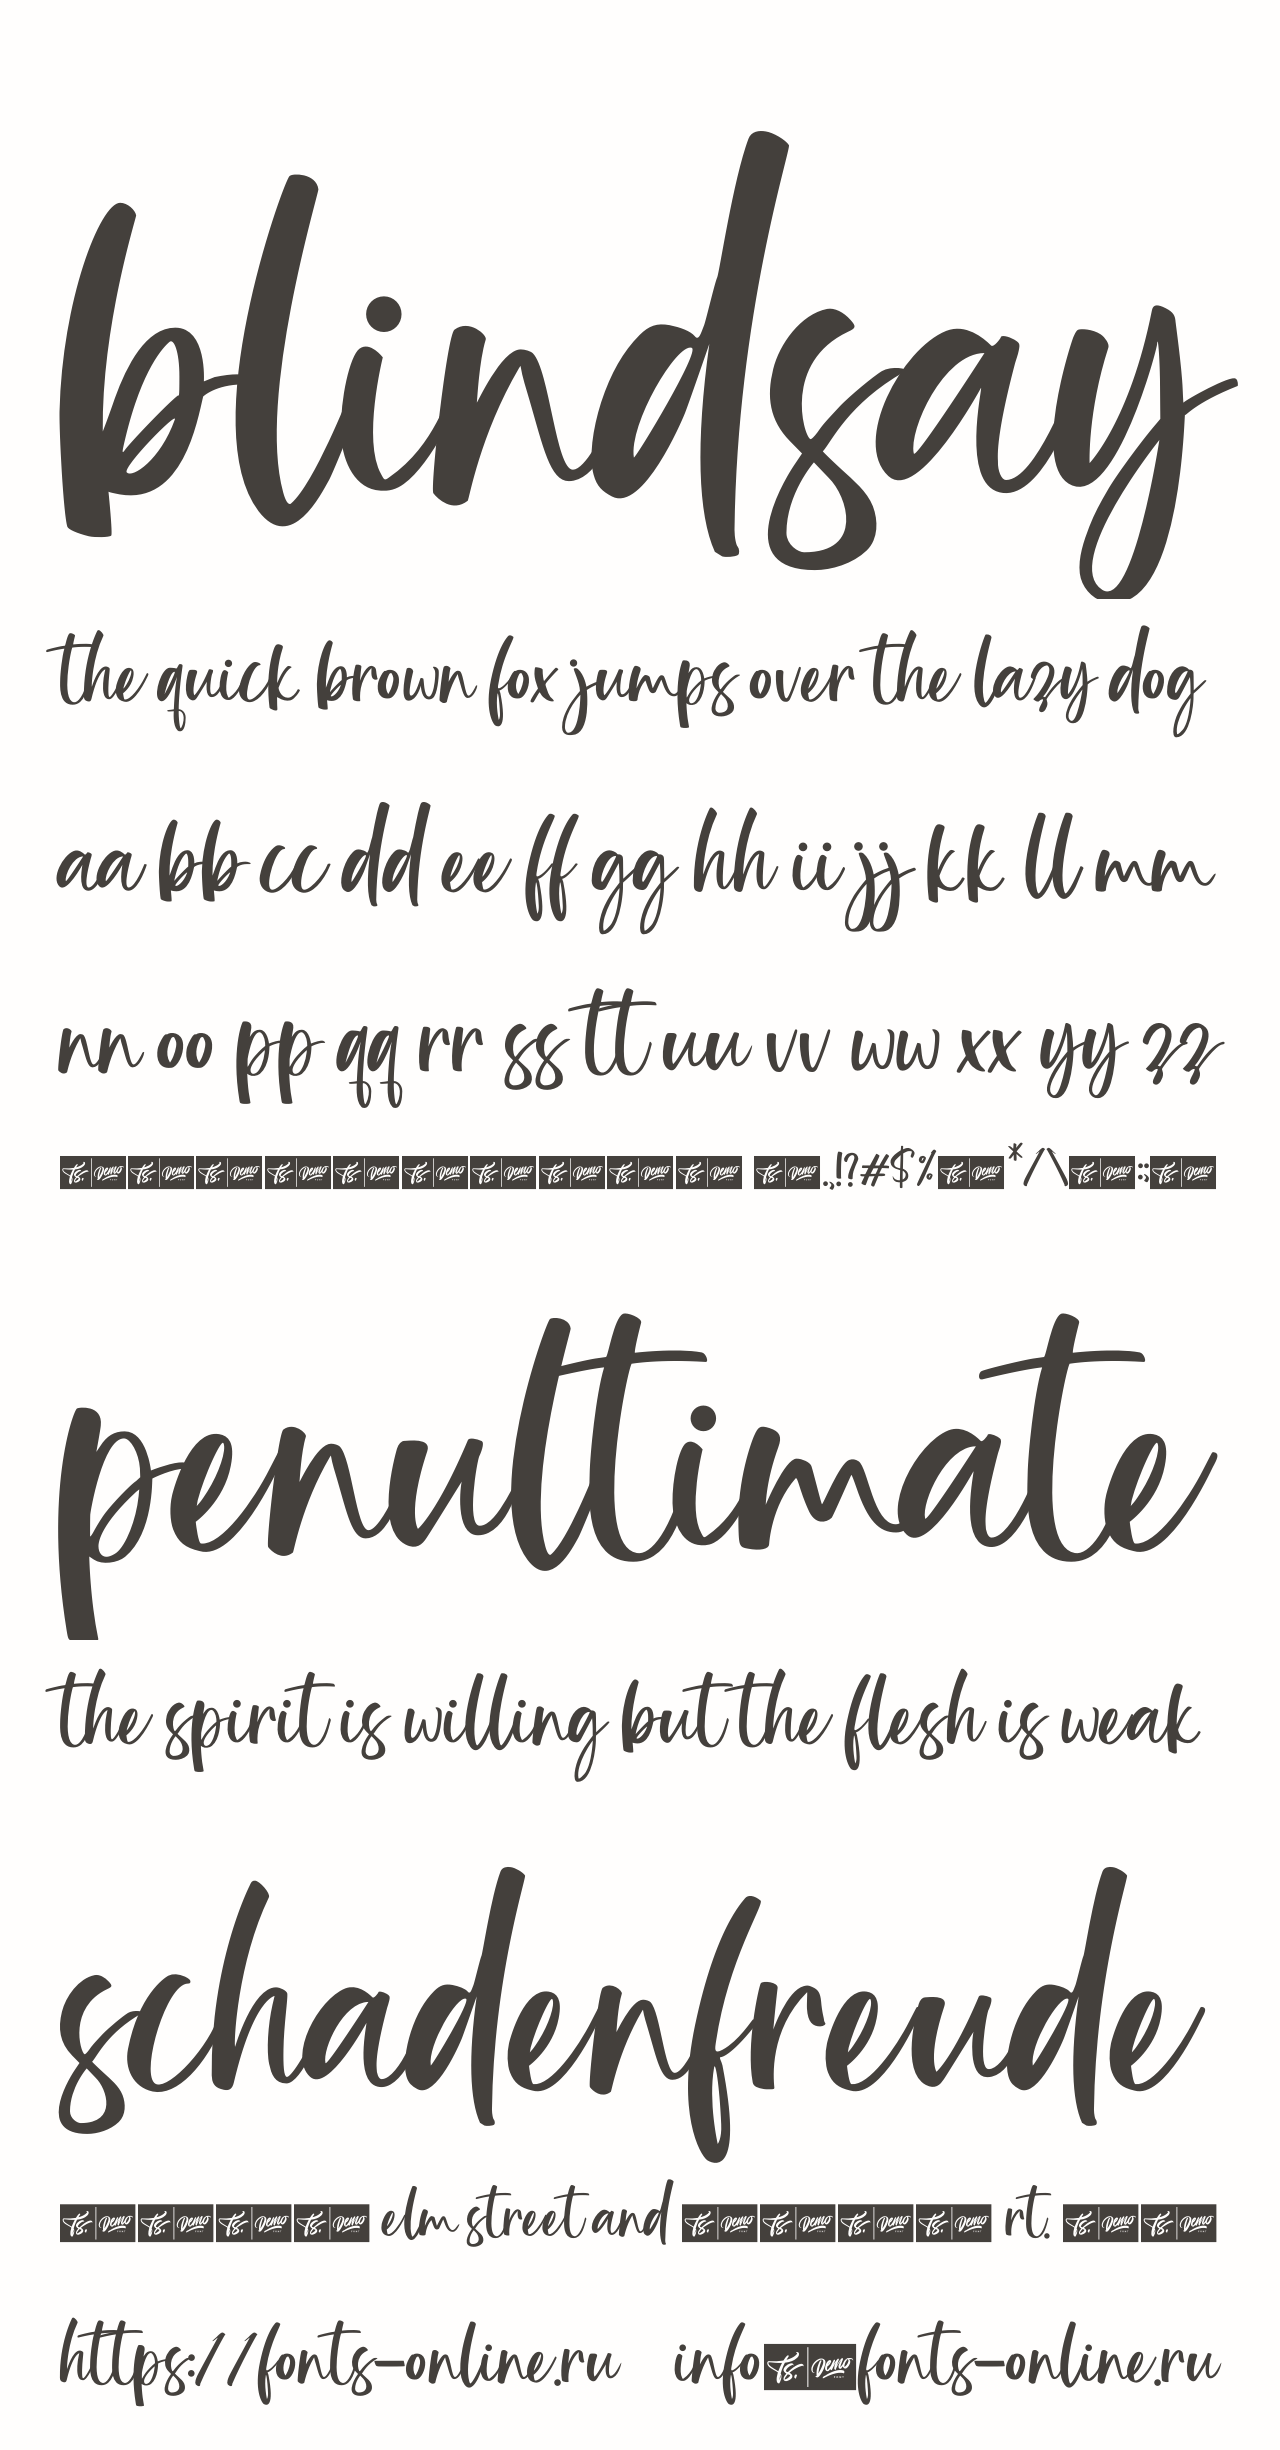 blindsay
the quick brown fox jumps over the lazy dog
aa bb cc dd ee ff gg hh ii jj kk ll mm
nn oo pp qq rr ss tt uu vv ww xx yy zz
Ts. Demo Ts. Demo Ts. Demo Ts. Demo Ts. Demo Ts. Demo Ts. Demo Ts. Demo Ts. Demo Ts. Demo Ts. Demo .,!?#$% Ts. Demo */\ Ts. Demo :; Ts. Demo
penultimate
the spirit is willing but the flesh is weak
schadenfreude
Ts. Demo Ts. Demo Ts. Demo Ts. Demo elm street and Ts. Demo Ts. Demo Ts. Demo Ts. Demo rt. Ts. Demo Ts. Demo
https://fonts-online.ru info Ts. Demo fonts-online.ru